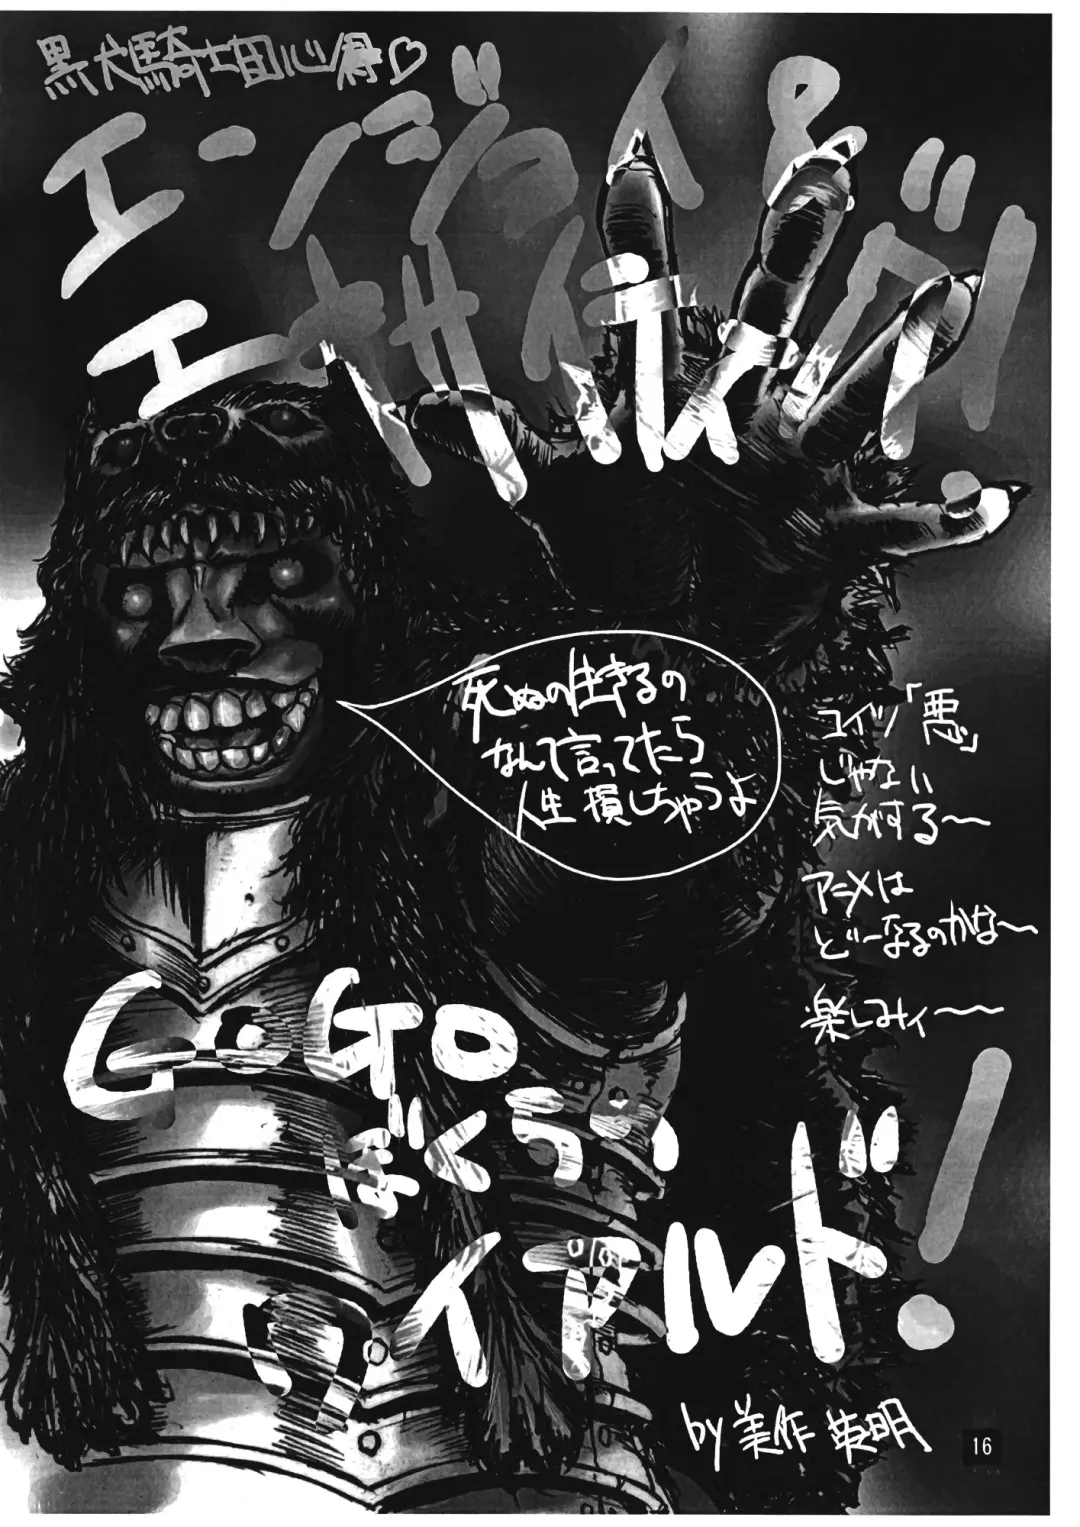 黒犬騎士団心得♡
エンジョイ&
エキサイティング!
死ぬの生きるの
なんて言ってたら
人生損しちゃうよ
コイツ「悪」
じゃない
気がする〜
アニメは
どーなるのかな〜
楽しみィ〜
GoGo
ぼくらの
ワイアルド!
by 美作 英明
16